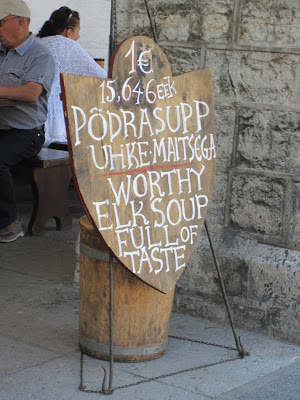 1€
15,646 EEK
PÕDRASUPP
UHKE·MAITSEGA
WORTHY
ELK SOUP
FULL OF
TASTE